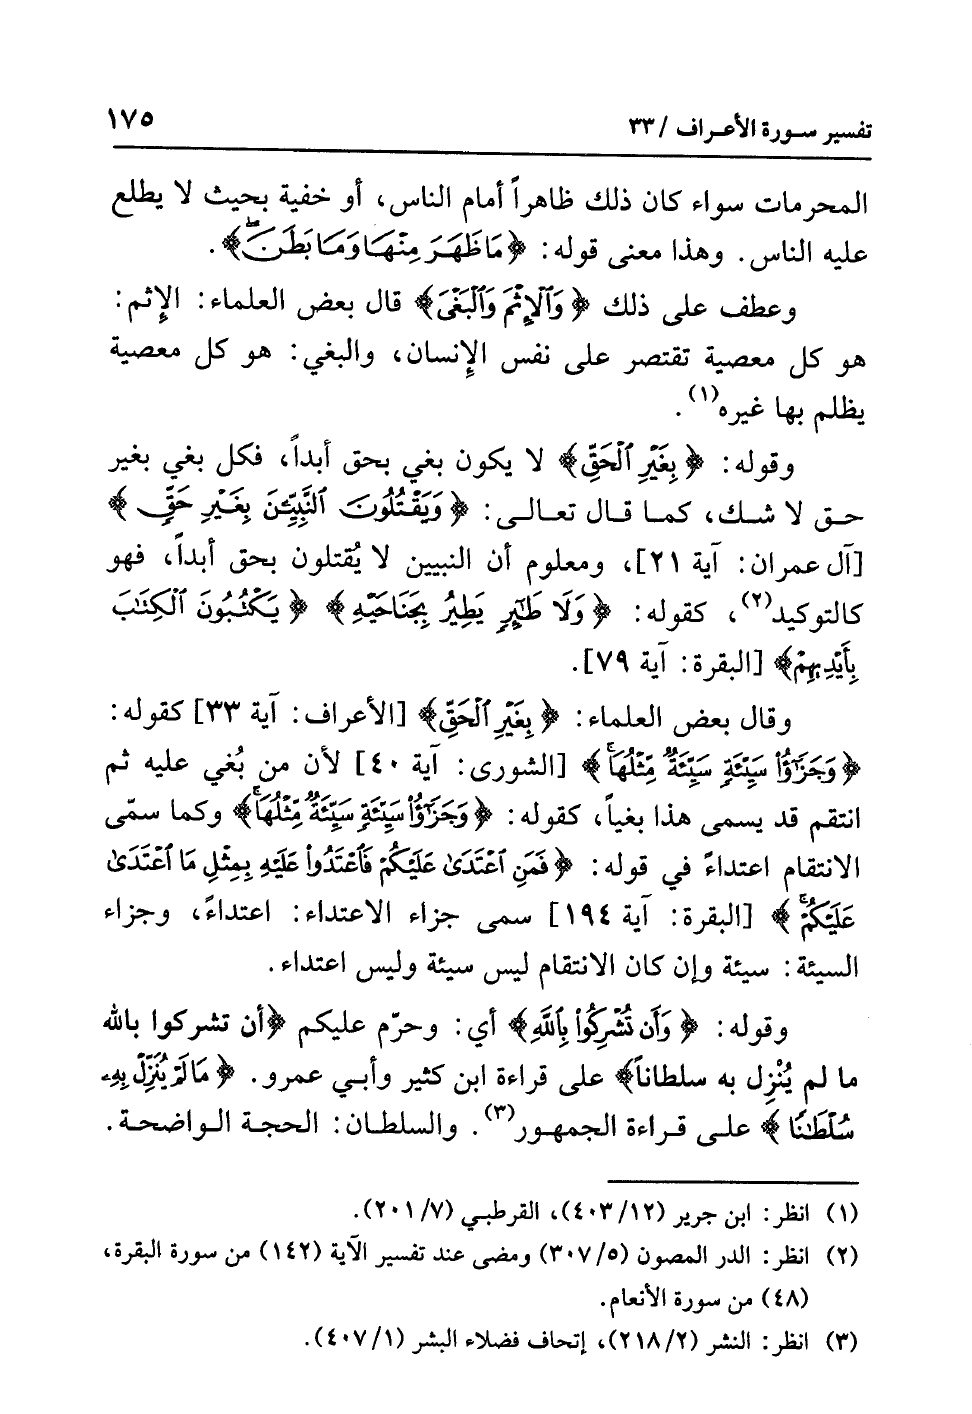 تفسير سورة الأعراف / ٣٣
١٧٥
المحرمات سواء كان ذلك ظاهراً أمام الناس، أو خفية بحيث لا يطلع
عليه الناس. وهذا معنى قوله: ﴿مَا ظَهَرَ مِنْهَا وَمَا بَطَنَ﴾.
وعطف على ذلك ﴿وَٱلْإِثْمَ وَٱلْبَغْىَ﴾ قال بعض العلماء: الإِثم:
هو كل معصية تقتصر على نفس الإِنسان، والبغي: هو كل معصية
يظلم بها غيره(١).
وقوله: ﴿بِغَيْرِ ٱلْحَقِّ﴾ لا يكون بغي بحق أبداً، فكل بغي بغير
حق لا شك، كما قال تعالى: ﴿وَيَقْتُلُونَ ٱلنَّبِيِّـۧنَ بِغَيْرِ حَقٍّ﴾
[آل عمران: آية ٢١]، ومعلوم أن النبيين لا يُقتلون بحق أبداً، فهو
كالتوكيد(٢)، كقوله: ﴿وَلَا طَٰٓئِرٍ يَطِيرُ بِجَنَاحَيْهِ﴾ ﴿يَكْتُبُونَ ٱلْكِتَٰبَ
بِأَيْدِيهِمْ﴾ [البقرة: آية ٧٩].
وقال بعض العلماء: ﴿بِغَيْرِ ٱلْحَقِّ﴾ [الأعراف: آية ٣٣] كقوله:
﴿وَجَزَٰٓؤُا۟ سَيِّئَةٍ سَيِّئَةٌ مِّثْلُهَا﴾ [الشورى: آية ٤٠] لأن من بُغي عليه ثم
انتقم قد يسمى هذا بغياً، كقوله: ﴿وَجَزَٰٓؤُا۟ سَيِّئَةٍ سَيِّئَةٌ مِّثْلُهَا﴾ وكما سمّى
الانتقام اعتداءً في قوله: ﴿فَمَنِ ٱعْتَدَىٰ عَلَيْكُمْ فَٱعْتَدُوا۟ عَلَيْهِ بِمِثْلِ مَا ٱعْتَدَىٰ
عَلَيْكُمْ﴾ [البقرة: آية ١٩٤] سمى جزاء الاعتداء: اعتداءً، وجزاء
السيئة: سيئة وإن كان الانتقام ليس سيئة وليس اعتداء.
وقوله: ﴿وَأَن تُشْرِكُوا۟ بِٱللَّهِ﴾ أي: وحرّم عليكم ﴿أن تشركوا بالله
ما لم يُنْزِل به سلطاناً﴾ على قراءة ابن كثير وأبي عمرو. ﴿مَا لَمْ يُنَزِّلْ بِهِۦ
سُلْطَٰنًا﴾ على قراءة الجمهور(٣). والسلطان: الحجة الواضحة.
(١) انظر: ابن جرير (٤٠٣/١٢)، القرطبي (٢٠١/٧).
(٢) انظر: الدر المصون (٣٠٧/٥) ومضى عند تفسير الآية (١٤٢) من سورة البقرة،
(٤٨) من سورة الأنعام.
(٣) انظر: النشر (٢١٨/٢)، إتحاف فضلاء البشر (٤٠٧/١).